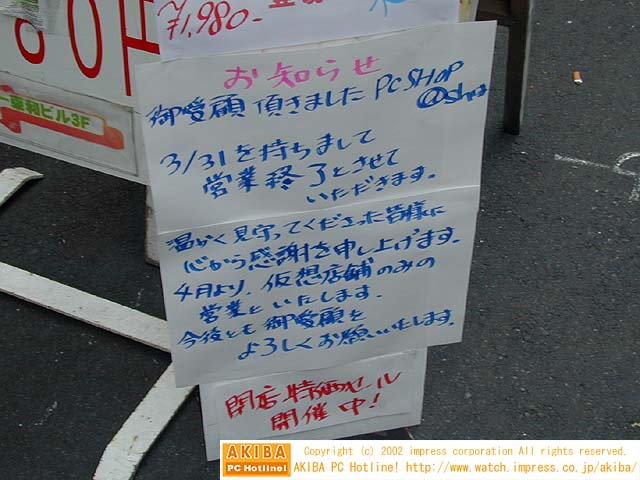 ¥1,980.-
一東和ビル3F
お知らせ
御愛顧頂きましたPC SHOP
@Shop
3/31を持ちまして
営業終了とさせて
いただきます。
温かく見守ってくださった皆様に
心から感謝を申し上げます。
4月より、仮想店舗のみの
営業といたします.
今後とも御愛顧を
よろしくお願いいたします。
閉店特価セール
開催中!
AKIBA
PC Hotline!
Copyright (c) 2002 impress corporation All rights reserved.
AKIBA PC Hotline! http://www.watch.impress.co.jp/akiba/